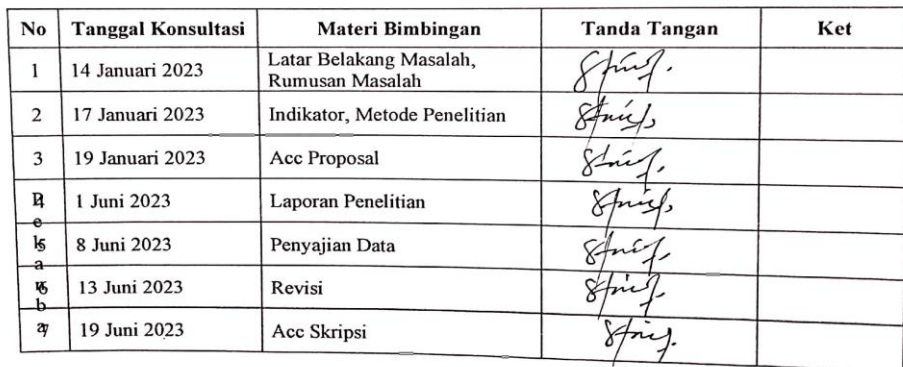 No Tanggal Konsultasi Materi Bimbingan Tanda Tangan Ket
1 14 Januari 2023 Latar Belakang Masalah,
Rumusan Masalah
2 17 Januari 2023 Indikator, Metode Penelitian
3 19 Januari 2023 Acc Proposal
4 1 Juni 2023 Laporan Penelitian
5 8 Juni 2023 Penyajian Data
6 13 Juni 2023 Revisi
7 19 Juni 2023 Acc Skripsi